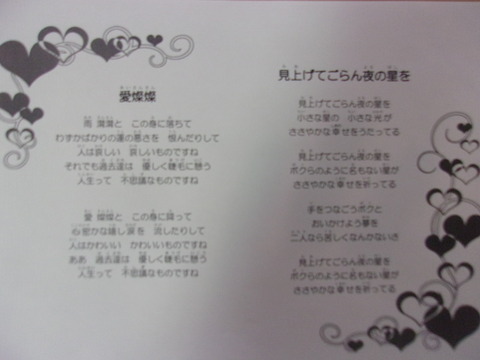 愛燦燦
雨 潸潸と この身に落ちて
わずかばかりの運の悪さを 恨んだりして
人は哀しい 哀しいものですね
それでも過去達は 優しく睫毛に憩う
人生って 不思議なものですね
愛 燦燦と この身に降って
心密かな嬉し涙を 流したりして
人はかわいい かわいいものですね
ああ 過去達は 優しく睫毛に憩う
人生って 不思議なものですね
見上げてごらん夜の星を
見上げてごらん夜の星を
小さな星の 小さな光が
ささやかな幸せをうたってる
見上げてごらん夜の星を
ボクらのように名もない星が
ささやかな幸せを祈ってる
手をつなごうボクと
おいかけよう夢を
二人なら苦しくなんかないさ
見上げてごらん夜の星を
ボクらのように名もない星が
ささやかな幸せを祈ってる